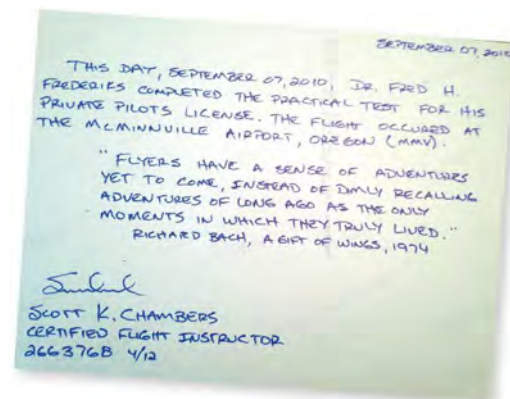 SEPTEMBER 07, 2010
THIS DAY, SEPTEMBER 07, 2010, DR. FRED H.
FREDERIKS COMPLETED THE PRACTICAL TEST FOR HIS
PRIVATE PILOTS LICENSE. THE FLIGHT OCCURED AT
THE MCMINNVILLE AIRPORT, OREGON (MMV).
"FLYERS HAVE A SENSE OF ADVENTURES
YET TO COME, INSTEAD OF DIMLY RECALLING
ADVENTURES OF LONG AGO AS THE ONLY
MOMENTS IN WHICH THEY TRULY LIVED."
RICHARD BACH, A GIFT OF WINGS, 1974
SCOTT K. CHAMBERS
CERTIFIED FLIGHT INSTRUCTOR
2663768 4/12